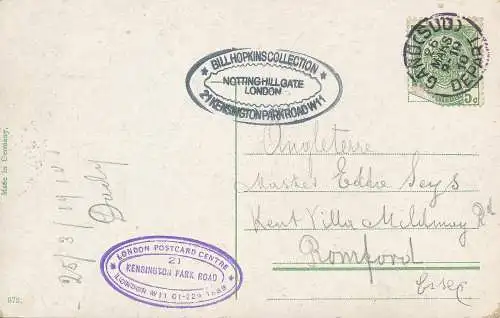 ★ BILL HOPKINS COLLECTION ★
NOTTING HILL GATE
LONDON
21 KENSINGTON PARK ROAD W11
GAND (SUD)
DEPART
10
5c
Angleterre
Master Eddie Seys
Kent Villa Mildmay Rd
Romford
Essex
25/3/1910
Dady
Made in Germany.
LONDON POSTCARD CENTRE
21
KENSINGTON PARK ROAD
LONDON W11 01-229